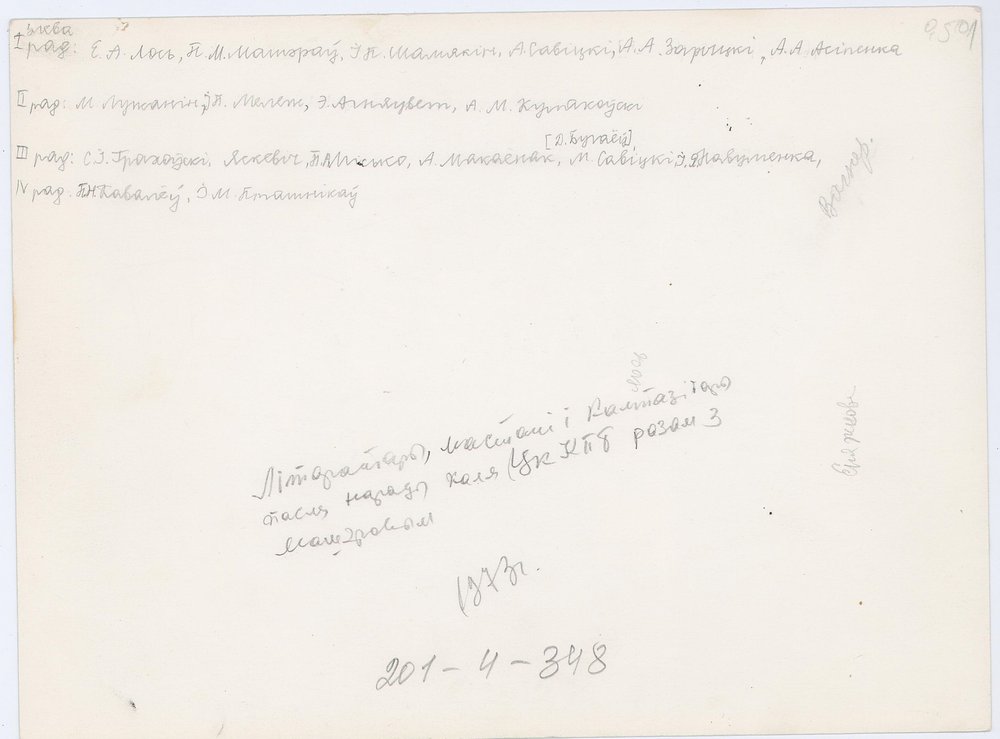 злева
I рад: Е.А. Лось, П.М. Машэраў, І.П. Шамякін, А. Савіцкі, А.А. Зарыцкі, А.А. Асіпенка
0,501
II рад: М. Лужанін, І.П. Мележ, Э. Агняцвет, А.М. Кулакоўскі
[Д. Бугаёў]
III рад: С.І. Грахоўскі, Яскевіч, П.А. Місько, А. Макаёнак, М. Савіцкі, І.Я. Навуменка,
IV рад: П.Н. Кавалёў, І.М. Пташнікаў
Літаратары, мастакі і кампазітары
пасля нарады каля ЦК КПБ разам з
Машэравым
1973 г.
201-4-348